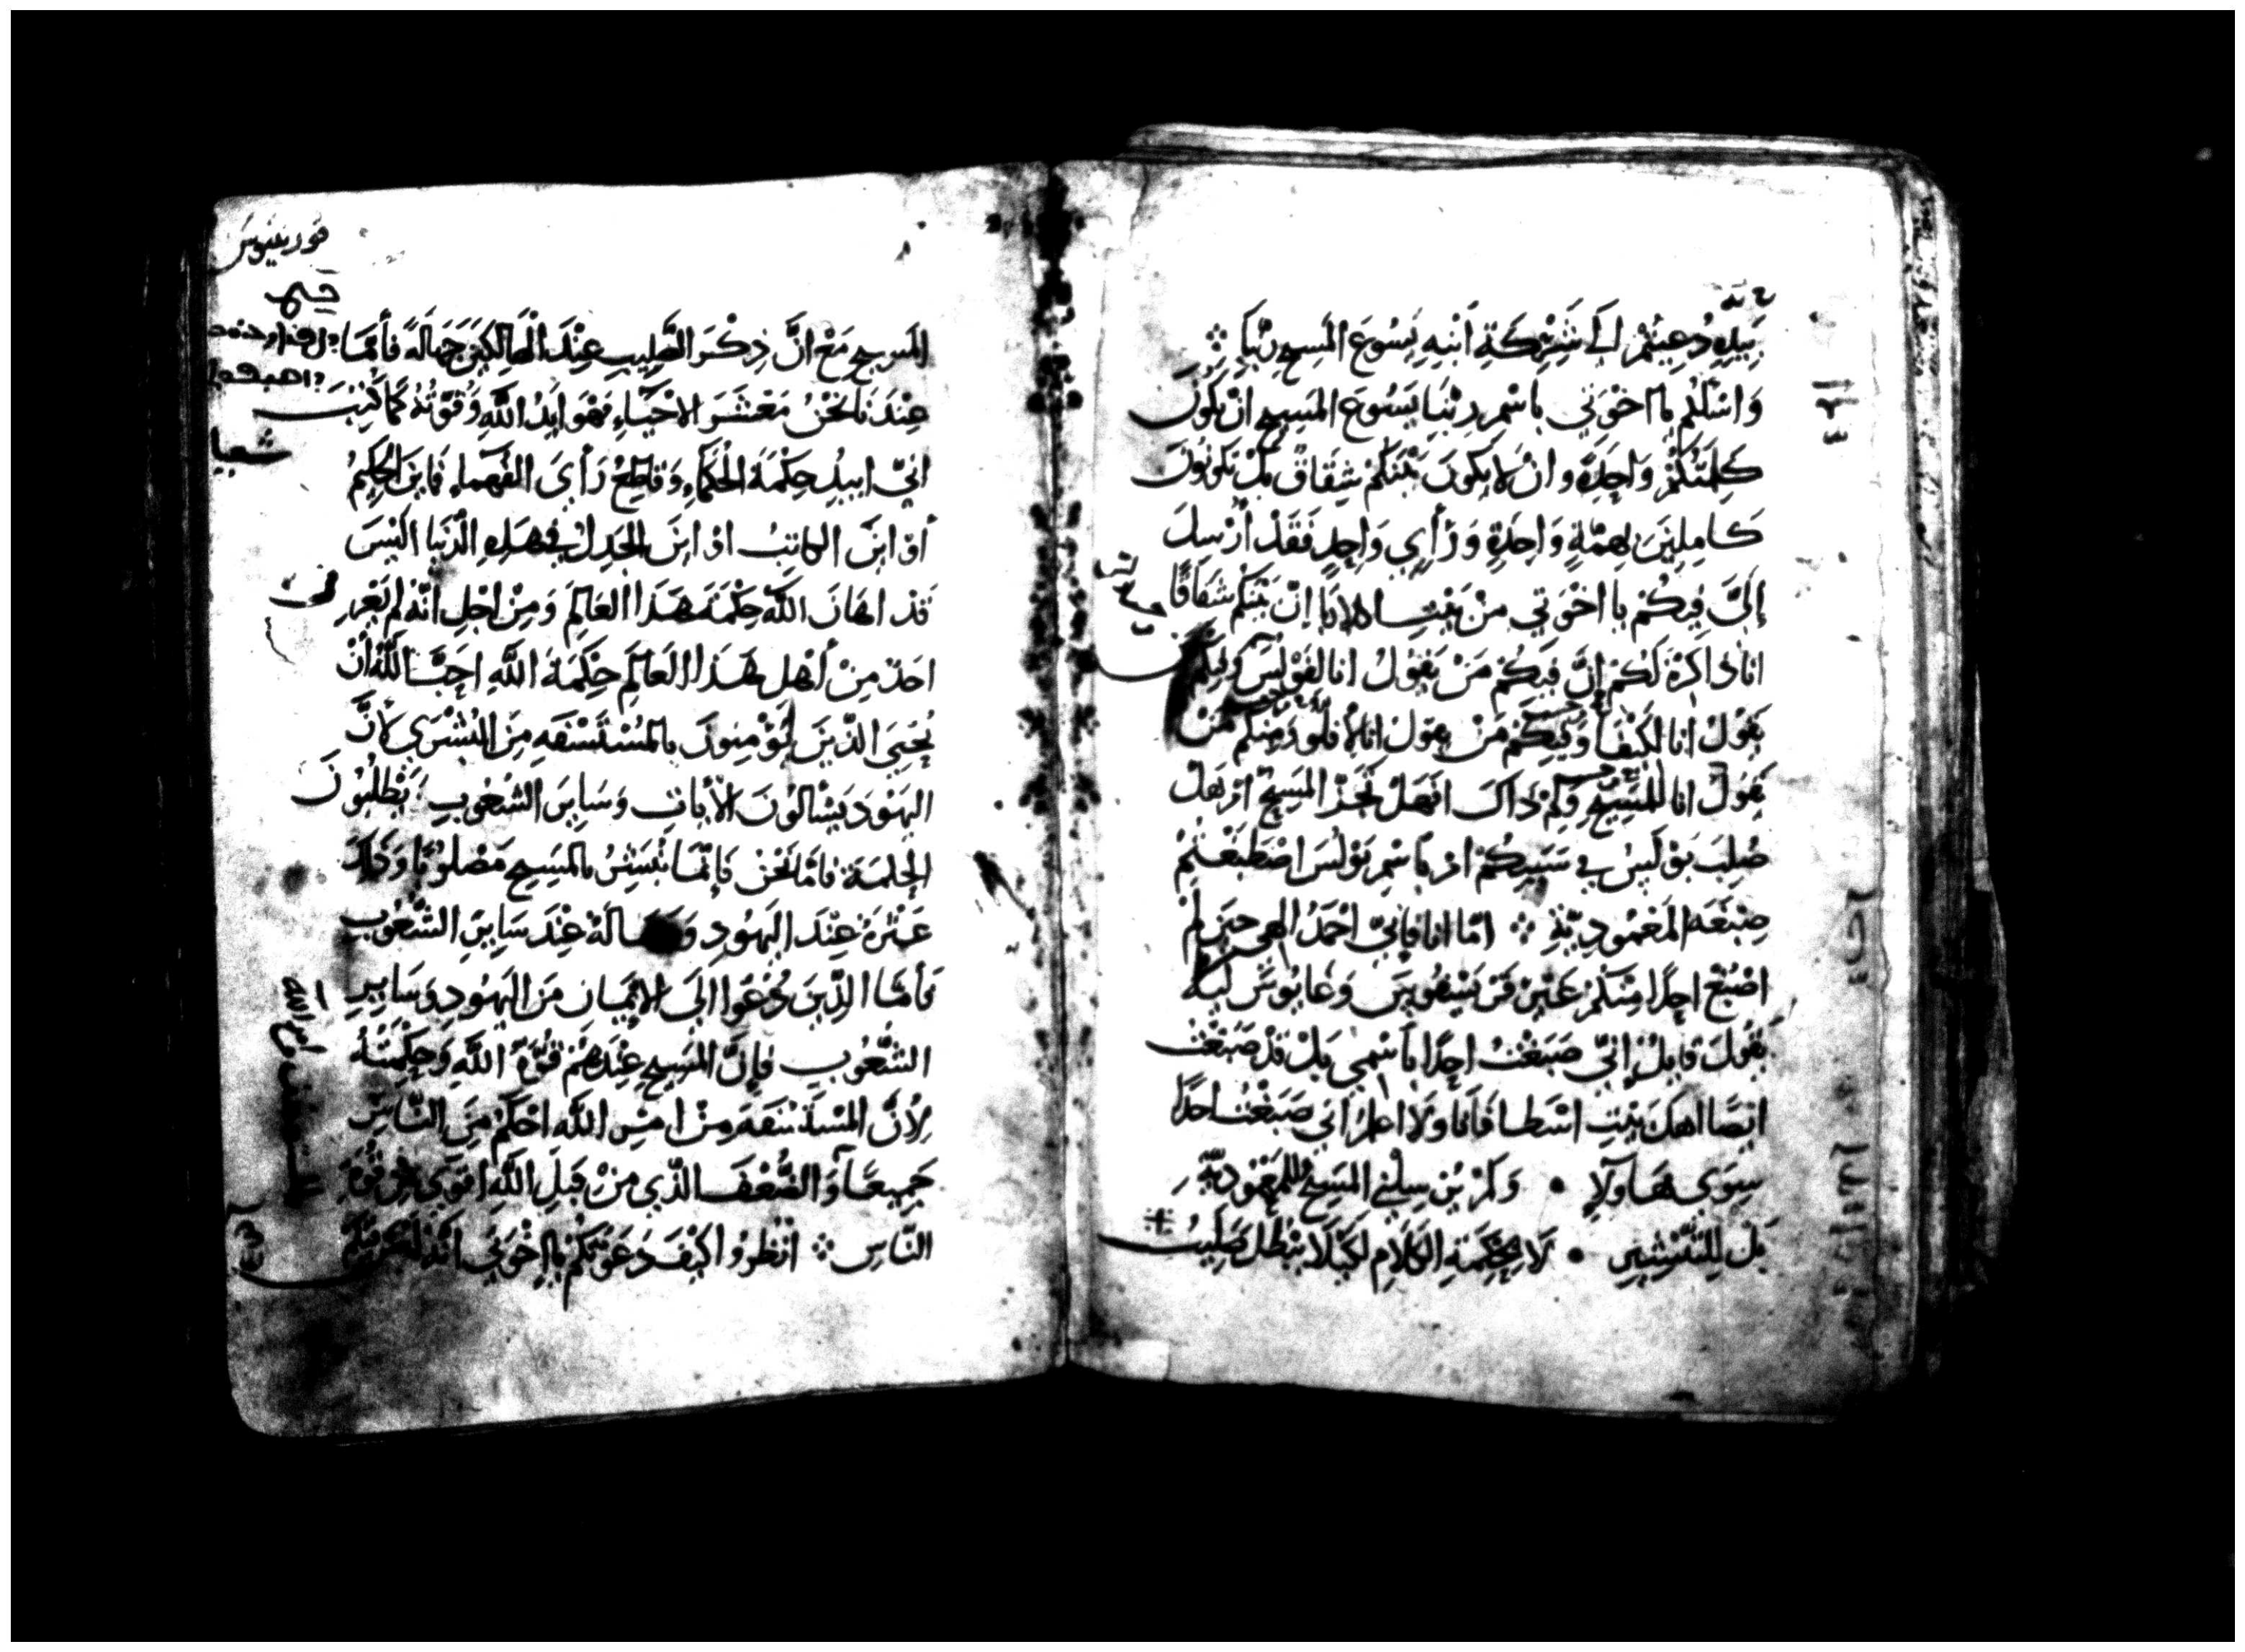 بِيَدِهِ دُعِيتُمْ إلَى شَرِكَةِ ابْنِهِ يَسُوعَ المَسِيحِ رَبِّنَا
وَاسْئَلُكُم يا اخْوَتي باسْمِ رَبِّنَا يَسُوعَ المَسِيحِ انْ تكُونَ
كَلِمَتُكُمْ وَاحِدَةً وانْ لا يَكُونَ بَيْنَكُمْ شِقَاقٌ بَلْ تَكونُونَ
كَامِلِينَ بِهِمَّةٍ وَاحِدَةٍ وَرَأْيٍ وَاحِدٍ فَقَدْ أُرْسِلَ
إلَيَّ فِيكُمْ يا اخْوَتي مِنْ بَيْتِ اكلابا إنّ بَيْنَكُمْ شقَاقًا
انا ذاكرَهُ لَكُمْ إنَّ فِيكُمْ مَنْ يَقُولُ انا لفَوْلُسَ وَفِيكُمْ مَنْ
يَقُولُ انا لكيفَا وَفِيكمْ مَنْ يقولُ انا لأفلو وَمِنكُم مَنْ
يَقولُ انا للمَسِيحِ وَلِمَ ذَاكَ افَهَلْ تَجَزَّا المَسِيحُ اوْ هَلْ
صُلِبَ بَوْلُسُ في سَبَبِكُمْ اوْ باسْمِ بَوْلُسَ اصْطَبَغْتُمْ
صِبْغَةَ المَعْمُودِيّةِ امّا انا فَانّي احْمَدُ الهي حينَ لَمْ
اصْبُغْ احِدًا مِنكُمْ غَيْرَ قَرِيسْفُوسَ وَغايُوسَ لَيلا
يَقُولَ قايلٌ إنّي صَبَغْتُ احِدًا باسْمي بَلْ قَدْ صَبَغْتُ
ايضًا اهلَ بَيْتِ اسْطافَانا وَلا اعلمُ اني صَبَغْتُ احدًا
سِوَى هَاولآءِ وَلمْ يُرْسِلْني المَسِيحُ للمَعْمُوديّةِ
بَل لِلتَّبْشِيرِ لَا بحِكْمَةِ الكَلَامِ لكَيْلَا يبْطُلَ صَلِيبُ
قورنثيوس
المَسِيحِ مَعْ انَّ ذِكْرَ الصَّلِيبِ عِنْدَ الْهَالِكِينَ جَهَالَةٌ فأمَّا
عِنْدَنا نَحْنُ مَعْشَرَ الاحْيَاءِ فَهْوَ ايَدُ اللَّهِ وَقُوَّتُهُ كَمَا كُتِبَ
شعيا
انيّ ابيدُ حِكْمَةَ الحُكَمَاءِ وَقاطِعٌ رَأيَ الفُهَماءِ فَاينَ الحَكِيمُ
أوْ ايْنَ الكاتِبُ اوْ ايْنَ الجَدِلُ في هَذِهِ الدُّنيَا الَيْسَ
قَدْ اهَانَ اللَّهُ حِكْمَةَ هَذَا العَالَمِ وَمِنْ اجْلِ انَّهُ لَمْ يَعْرِفْ
احَدٌ مِنْ أهْلِ هَذَا العَالَمِ حِكْمَةَ اللَّهِ احَبَّ اللَّهُ انْ
يُحْيِيَ الَّذِينَ يُؤْمِنونَ بالمُسْتَسْفَهِ مِنَ البُشْرَى لأنَّ
اليَهُودَ يَسْألُونَ الآيَاتِ وَسَايرَ الشُعُوبِ يَطْلُبُونَ
الحِكمَةَ فامَّا نَحْنُ فَإنَّمَا نُبَشِّرُ بالمَسِيحِ مَصْلوبًا وَذَلِكَ
عَثْرَةٌ عِنْدَ اليَهُودِ وَ الَةٌ عِنْدَ سَايِرِ الشُّعُوبِ
فَأمَّا الَّذِينَ دُعُوا الَى الايمَانِ مِنَ اليَهُودِ وَسَايِرِ
الشُّعُوبِ فإنَّ المَسِيحَ عِنْدَهُمْ قُوَّةُ اللَّهِ وَحِكْمَتُهُ
لأنَّ المُسْتَسْفَهَ مِنْ امْرِ اللَّهِ احْكَمُ مِنَ النَّاسِ
جَمِيعًا وَالضُّعْفَ الَّذِي مِنْ قِبَلِ اللَّهِ اقوَى مِن قُوَّةِ
النَّاسِ انْظُرُوا كَيْفَ دَعْوَتُكُمْ يا اخْوَتي انَّهُ لَيْسَ فِيكُمْ